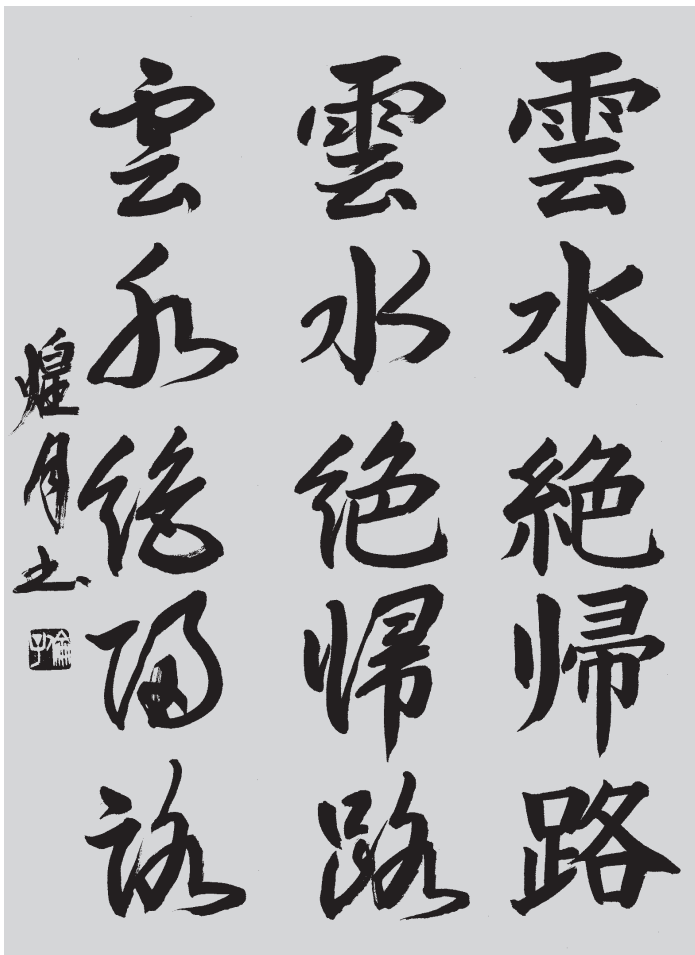 雲水絶帰路
雲水絶帰路
雲水絶帰路
煌月书